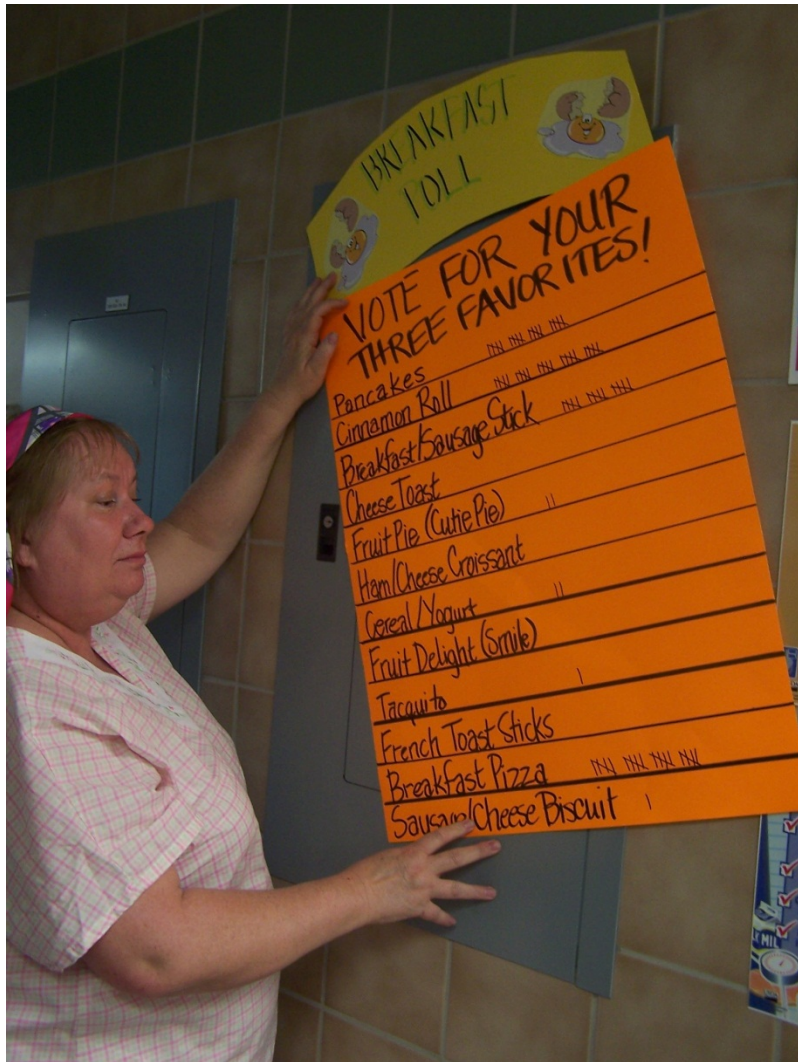 BREAKFAST
POLL
VOTE FOR YOUR
THREE FAVORITES!
Pancakes
Cinnamon Roll
Breakfast/Sausage Stick
Cheese Toast
Fruit Pie (Cutie Pie)
Ham/Cheese Croissant
Cereal/Yogurt
Fruit Delight (Smile)
Tacquito
French Toast Sticks
Breakfast Pizza
Sausage/Cheese Biscuit